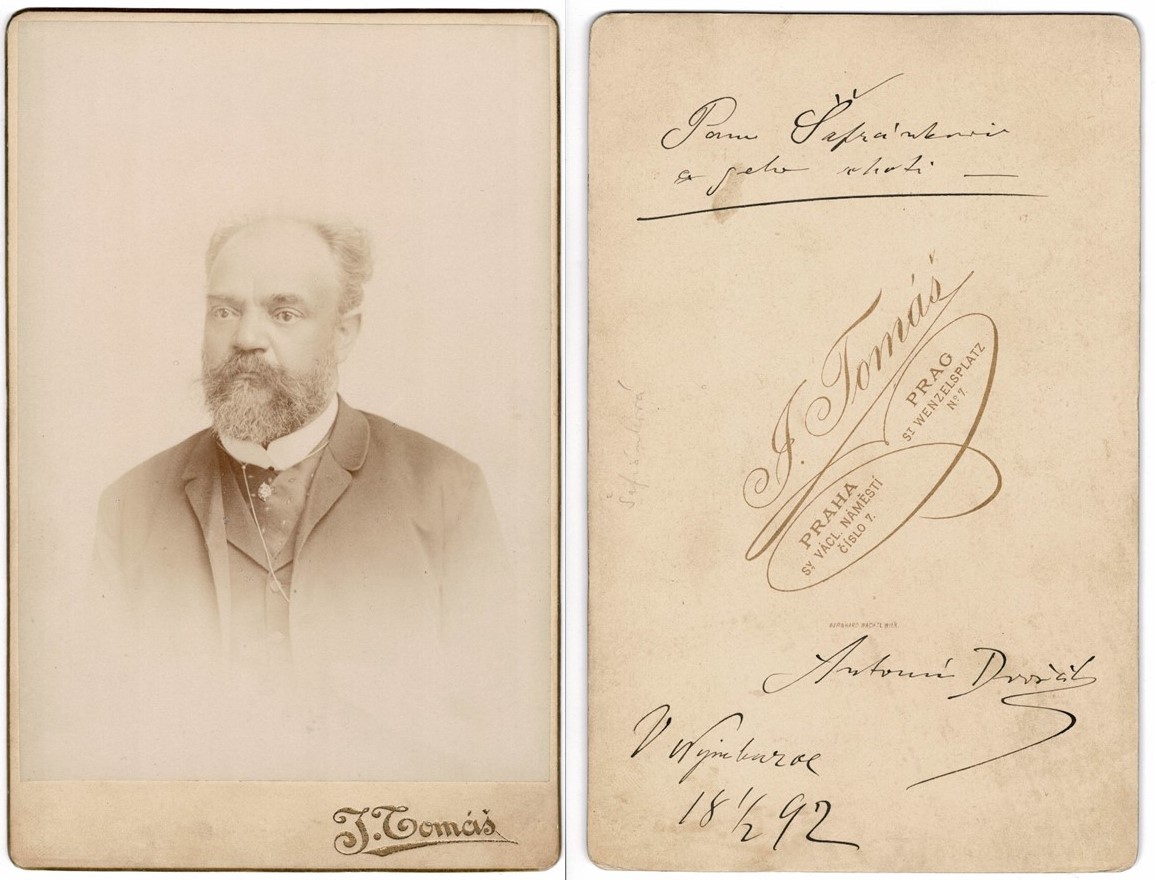 J. Tomáš
Panu Šafránkovi
a jeho choti —
J. Tomáš
PRAG
ST WENZELSPLATZ
No 7.
PRAHA
SV VÁCL. NÁMĚSTÍ
ČÍSLO 7.
Antonín Dvořák
V Nymburce
18 1/2 92